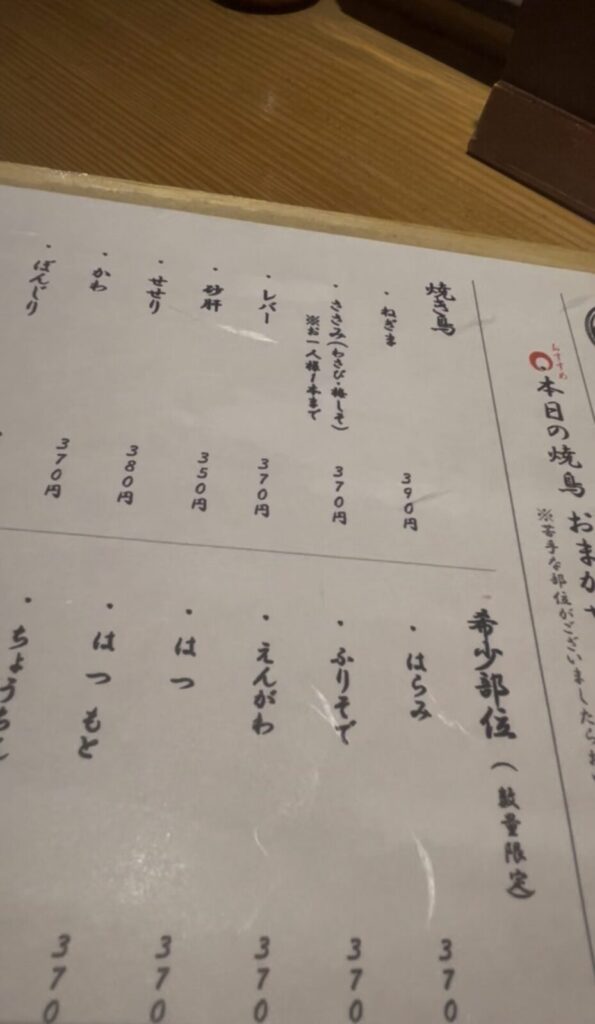 おすすめ
・本日の焼鳥 おまかせ
※苦手な部位がございましたらお
焼き鳥
・ねぎま 390円
・ささみ(わさび・梅しそ) 370円
※お一人様1本まで
・レバー 370円
・砂肝 350円
・せせり 380円
・かわ 370円
・ぼんじり
希少部位(数量限定)
・はらみ 370
・ふりそで 370
・えんがわ 370
・はつ 370
・はつもと 370
・ちょうちん